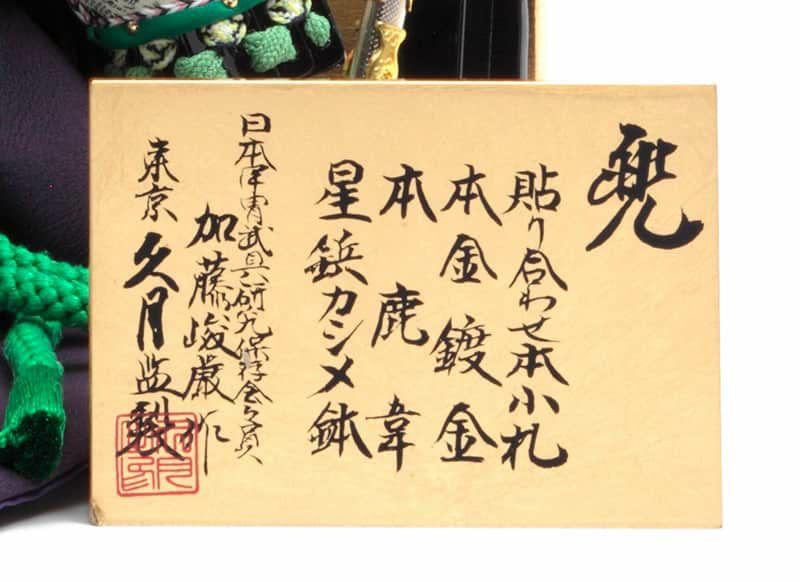 兜
貼り合わせ本小札
本金鍍金
本鹿韋
星鋲カシメ鉢
日本甲冑武具研究保存会々員
加藤峻厳作
東京久月監製